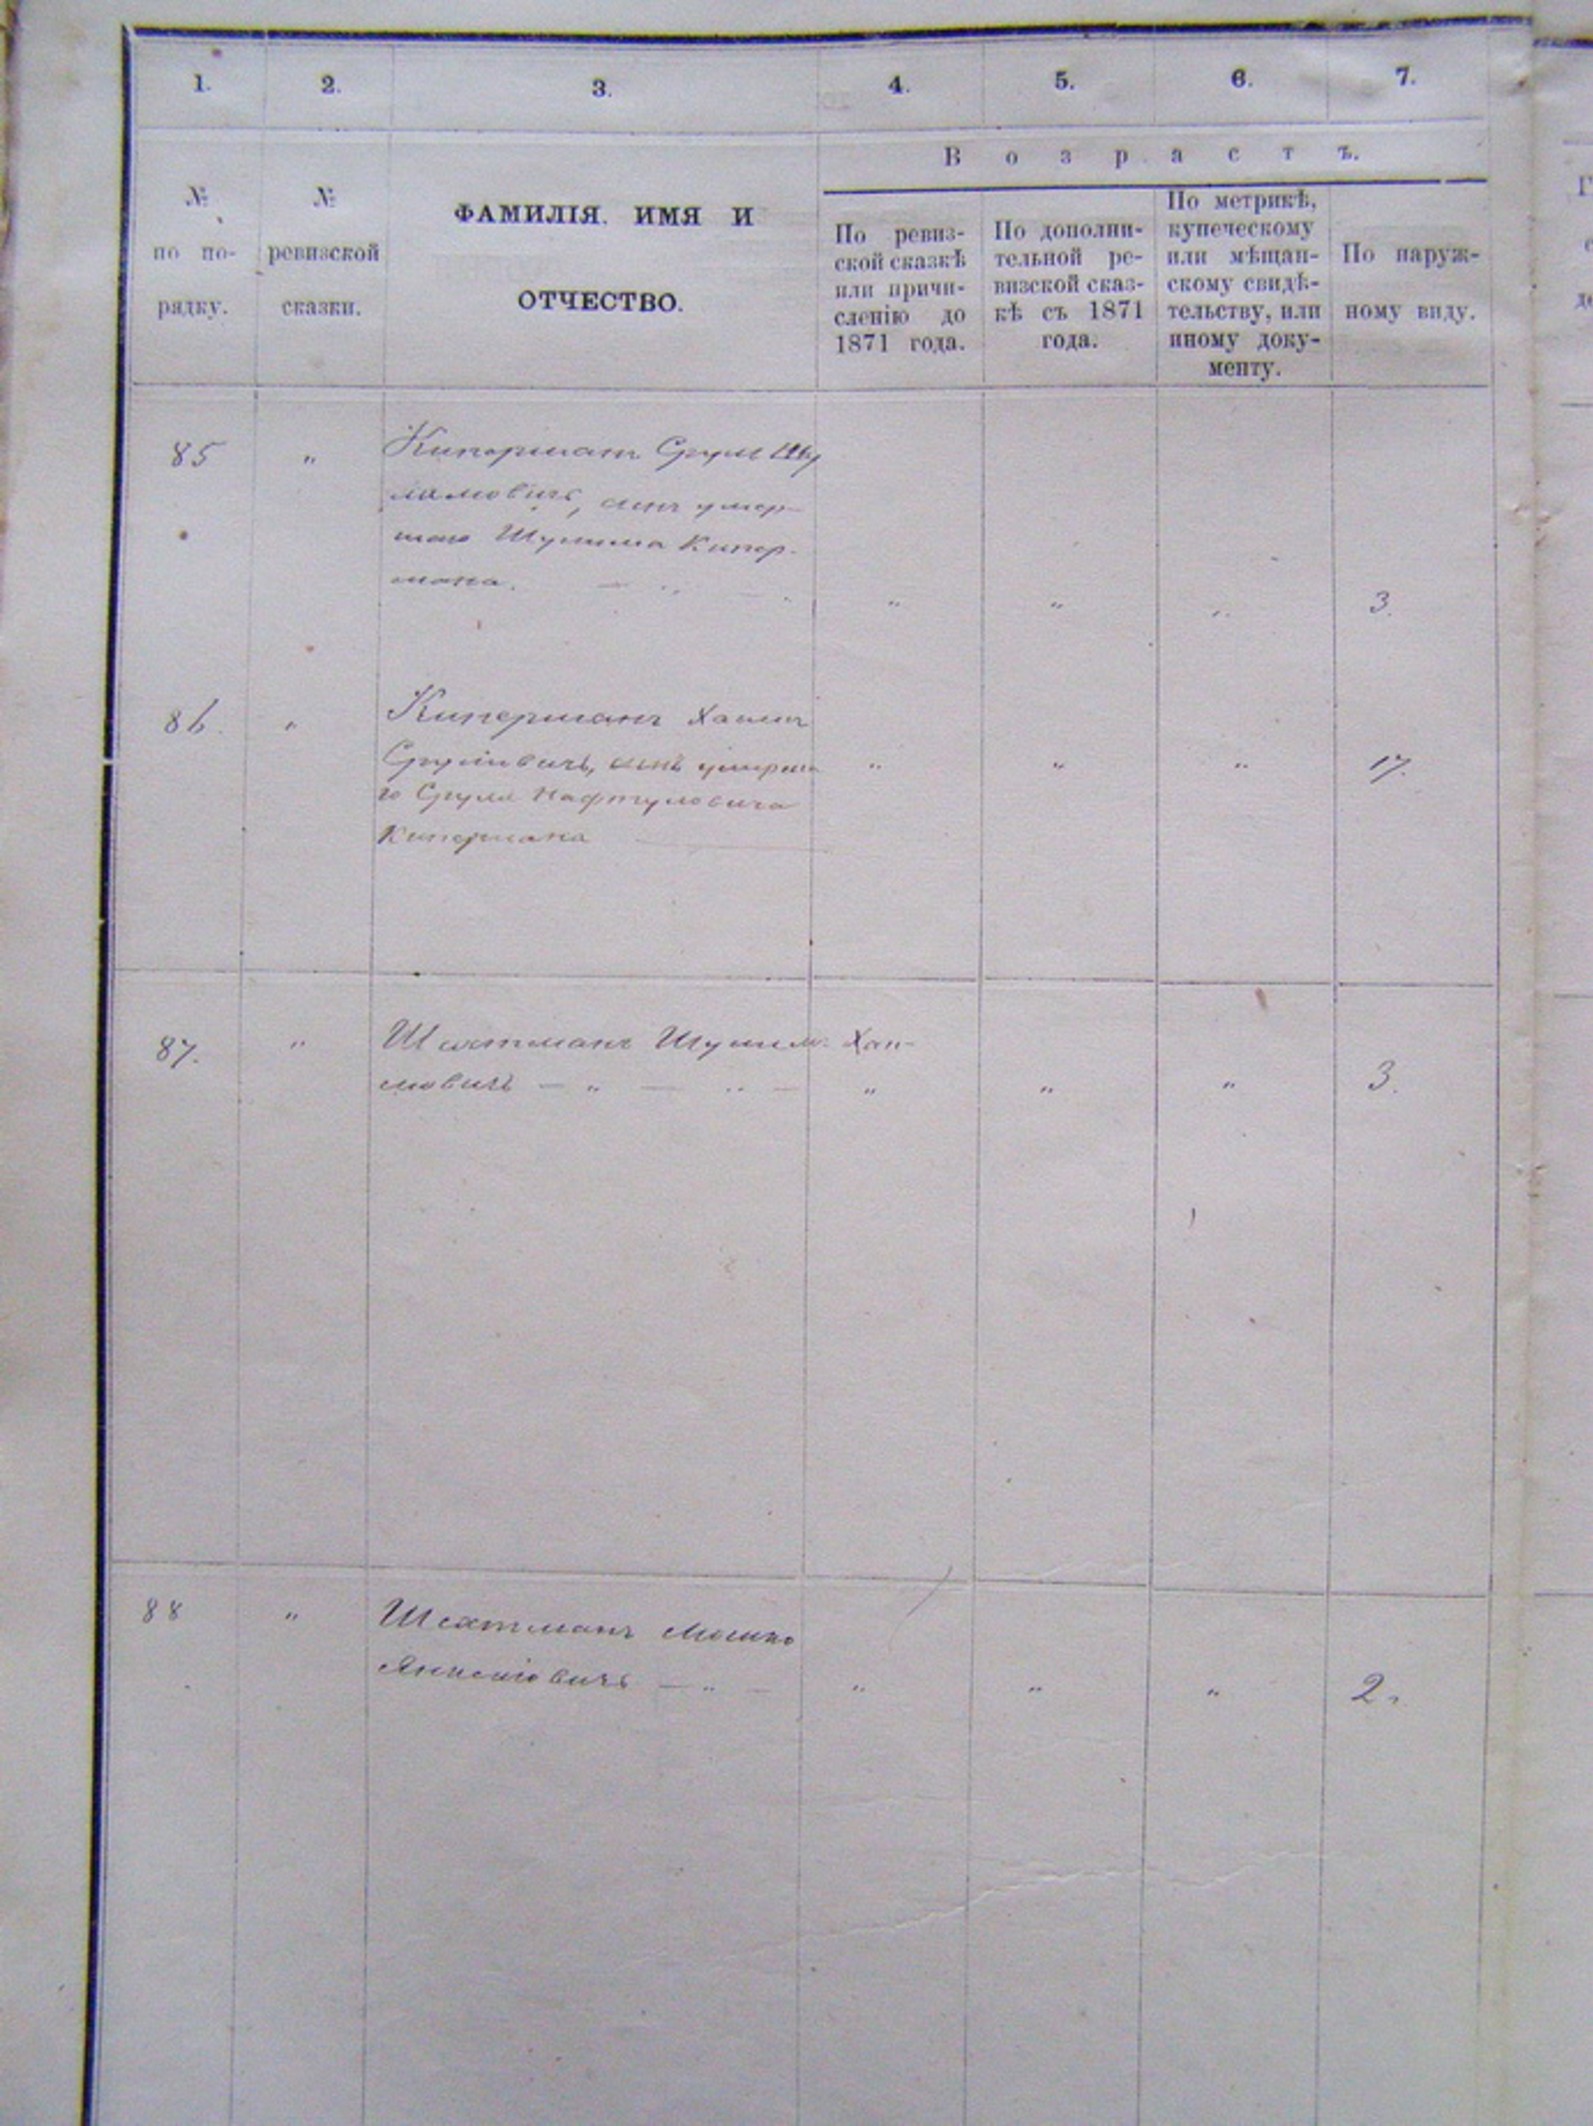 1. 2. 3. 4. 5. 6. 7.
Возрастъ.
№
по по-
рядку.
№
ревизской
сказки.
ФАМИЛІЯ. ИМЯ И
ОТЧЕСТВО.
По ревиз-
ской сказкѣ
или причи-
сленію до
1871 года.
По дополни-
тельной ре-
визской сказ-
кѣ съ 1871
года.
По метрикѣ,
купеческому
или мѣщан-
скому свидѣ-
тельству, или
иному доку-
менту.
По наруж-
ному виду.
85 " Киперманъ Срулъ Шу
лимовичъ, сынъ умер-
шаго Шулима Кипер-
мана. " " " 3.
86. " Киперманъ Хаимъ
Сруловичъ, сынъ умерша " " " 17.
го Сруля Нафтуловича
Кипермана
87. " Шехтманъ Шулимъ Хаи-
мовичъ — " — " — " " " 3.
88 " Шехтманъ Мошко
Янкелевичъ — " — " " " 2.